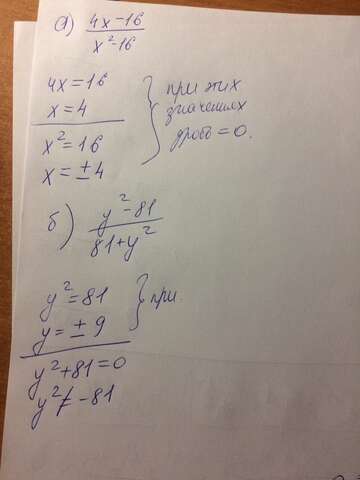 а) 4x-16 / x²-16
4x=16
x=4
x²=16
x=±4
при этих
значениях
дробь=0.
б) y²-81 / 81+y²
y²=81
y=±9
при
y²+81=0
y²≠-81